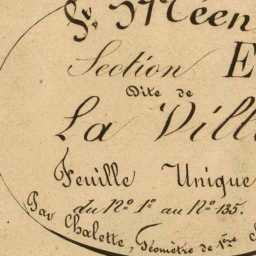 St Méen
Section E
Dite de
La Vill
Feuille Unique
du No 1er au No 135.
Par Chalette, Géomètre de 1ère